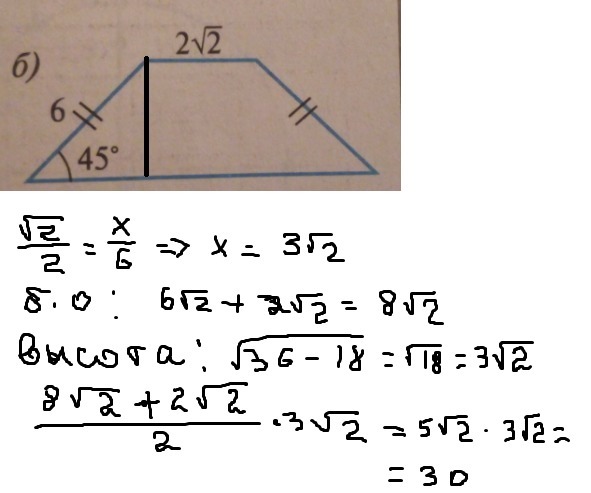 2√2
б)
6
45°
√2/2 = x/6 => x = 3√2
б.о: 6√2 + 2√2 = 8√2
высота: √36-18 = √18 = 3√2
8√2 + 2√2/2 · 3√2 = 5√2 · 3√2 =
= 30